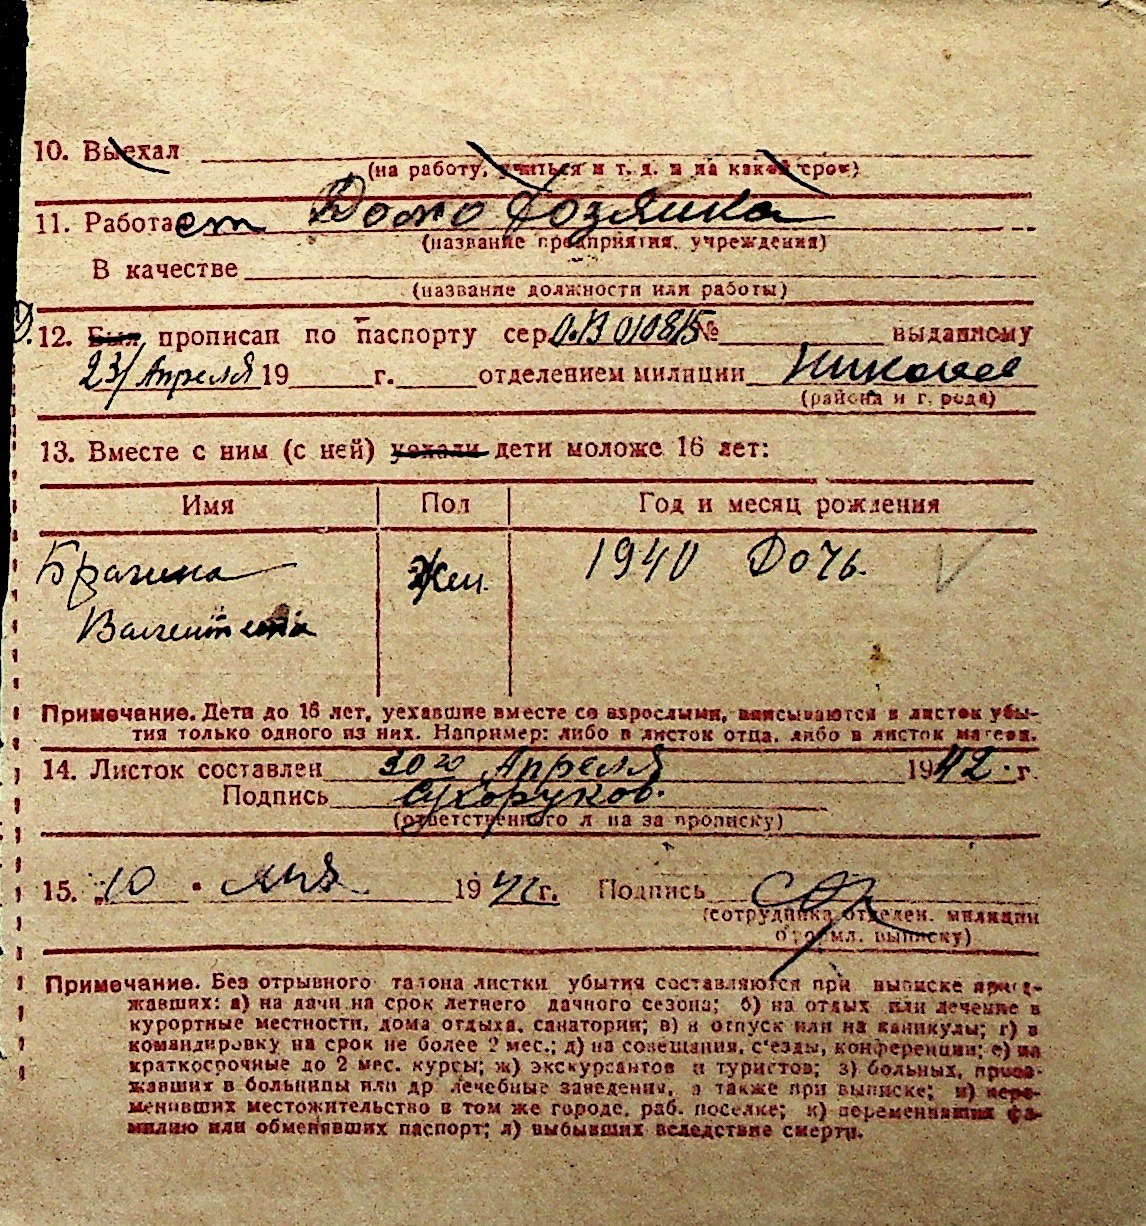 10. Выехал
(на работу, учиться и т. д. и на какой срок)
11. Работает Домо Хозяика
(название предприятия, учреждения)
В качестве
(название должности или работы)
12. Был прописан по паспорту сер. О.В 010815 № выданному
23/Апреля 19 г. отделением милиции
(района и г. рода)
13. Вместе с ним (с ней) уехали дети моложе 16 лет:
Имя Пол Год и месяц рождения
Брагина Жен. 1940 Дочь.
Валентина
Примечание. Дети до 16 лет, уехавшие вместе со взрослыми, вписываются в листок убы-
тия только одного из них. Например: либо в листок отца, либо в листок матери.
14. Листок составлен 30го Апреля 1942. г.
Подпись Сухоруков.
(ответственного л на за прописку)
15. „10 " мая 1942г. Подпись
(сотрудника отделен. милиции
оформл. выписку)
Примечание. Без отрывного талона листки убытия составляются при выписке приез-
жавших: а) на дачи на срок летнего дачного сезона; б) на отдых или лечение в
курортные местности, дома отдыха, санатории; в) в отпуск или на каникулы; г) в
командировку на срок не более 2 мес.; д) на совещания, с'езды, конференции; е) на
краткосрочные до 2 мес. курсы; ж) экскурсантов и туристов; з) больных, приез-
жавших в больницы или др лечебные заведения, а также при выписке; и) пере-
менивших местожительство в том же городе, раб. поселке; к) переменивших фа-
милию или обменявших паспорт; л) выбывших вследствие смерти.